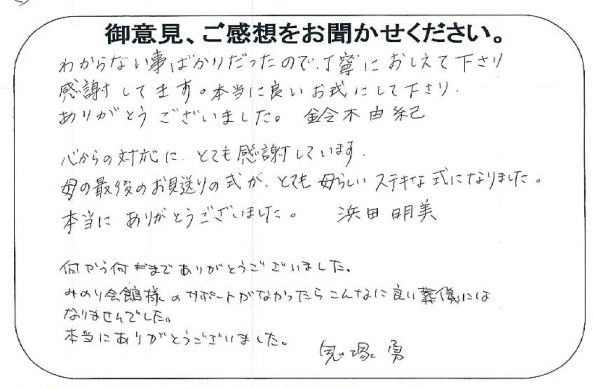 御意見、ご感想をお聞かせください。
わからない事ばかりだったので、丁寧におしえて下さり
感謝してます。本当に良いお式にして下さり、
ありがとうございました。 鈴木由紀
心からの対応に、とても感謝しています。
母の最後のお見送りの式が、とても母らしいステキな式になりました。
本当にありがとうございました。 浜田明美
何から何までありがとうございました。
みのり会館様のサポートがなかったらこんなに良い葬儀には
なりませんでした。
本当にありがとうございました。 塚 勇